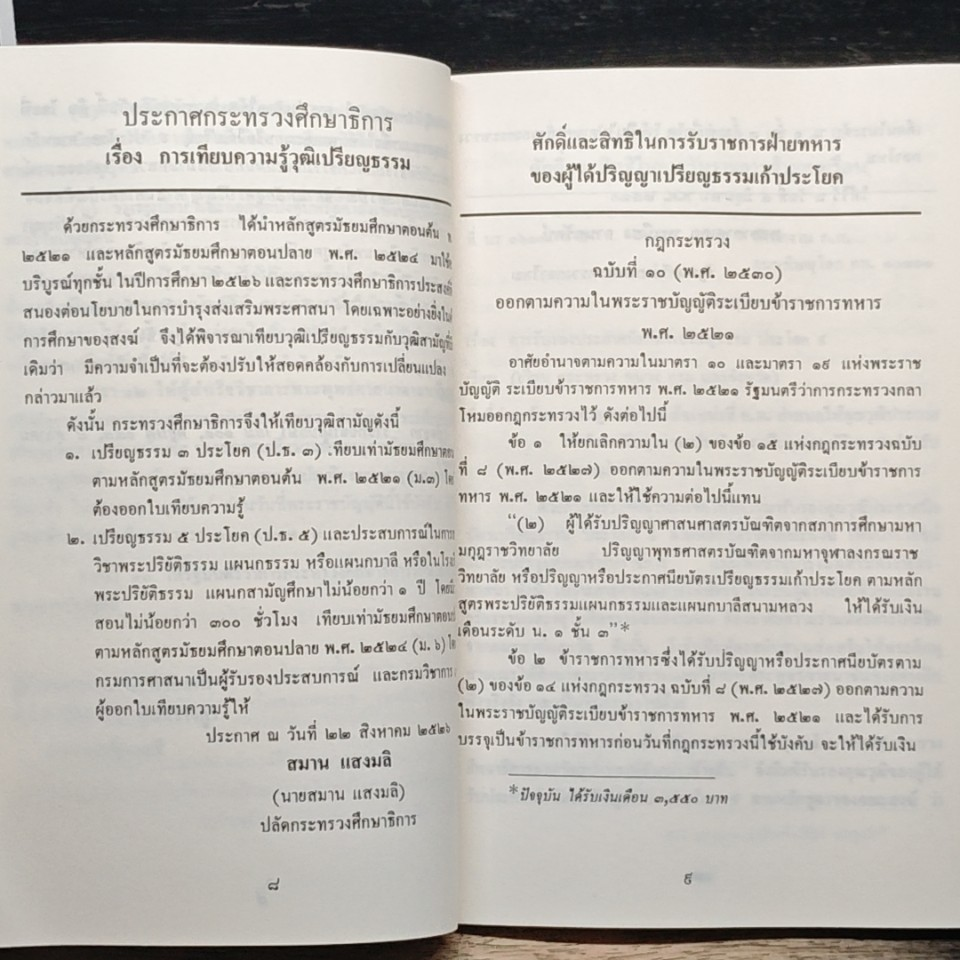 ประกาศกระทรวงศึกษาธิการ
เรื่อง การเทียบความรู้วุฒิเปรียญธรรม
ด้วยกระทรวงศึกษาธิการ ได้นำหลักสูตรมัธยมศึกษาตอนต้น
๒๕๒๑ และหลักสูตรมัธยมศึกษาตอนปลาย พ.ศ. ๒๕๒๔ มาใช้
บริบูรณ์ทุกชั้น ในปีการศึกษา ๒๕๒๖ และกระทรวงศึกษาธิการประสงค์
สนองต่อนโยบายในการบำรุงส่งเสริมพระศาสนา โดยเฉพาะอย่างยิ่งใน
การศึกษาของสงฆ์ จึงได้พิจารณาเทียบวุฒิเปรียญธรรมกับวุฒิสามัญ
เดิมว่า มีความจำเป็นที่จะต้องปรับให้สอดคล้องกับการเปลี่ยนแปลง
กล่าวมาแล้ว
ดังนั้น กระทรวงศึกษาธิการจึงให้เทียบวุฒิสามัญดังนี้
๑. เปรียญธรรม ๓ ประโยค (ป.ธ. ๓) .เทียบเท่ามัธยมศึกษาตอน
ตามหลักสูตรมัธยมศึกษาตอนต้น พ.ศ. ๒๕๒๑ (ม.๓)
ต้องออกใบเทียบความรู้
๒. เปรียญธรรม ๕ ประโยค (ป.ธ. ๕) และประสบการณ์ในการ
วิชาพระปริยัติธรรม แผนกธรรม หรือแผนกบาลี หรือในโรง
พระปริยัติธรรม แผนกสามัญศึกษาไม่น้อยกว่า ๑ ปี โดย
สอนไม่น้อยกว่า ๓๐๐ ชั่วโมง เทียบเท่ามัธยมศึกษาตอน
ตามหลักสูตรมัธยมศึกษาตอนปลาย พ.ศ. ๒๕๒๔ (ม. ๖)
กรมการศาสนาเป็นผู้รับรองประสบการณ์ และกรมวิชาการ
ผู้ออกใบเทียบความรู้ให้
ประกาศ ณ วันที่ ๒๒ สิงหาคม ๒๕๒๖
สมาน แสงมลิ
(นายสมาน แสงมลิ)
ปลัดกระทรวงศึกษาธิการ
๘
ศักดิ์และสิทธิในการรับราชการฝ่ายทหาร
ของผู้ได้ปริญญาเปรียญธรรมเก้าประโยค
กฎกระทรวง
ฉบับที่ ๑๐ (พ.ศ. ๒๕๓๐)
ออกตามความในพระราชบัญญัติระเบียบข้าราชการทหาร
พ.ศ. ๒๕๒๑
อาศัยอำนาจตามความในมาตรา ๑๐ และมาตรา ๑๙ แห่งพระราช
บัญญัติ ระเบียบข้าราชการทหาร พ.ศ. ๒๕๒๑ รัฐมนตรีว่าการกระทรวงกลา
โหมออกกฎกระทรวงไว้ ดังต่อไปนี้
ข้อ ๑ ให้ยกเลิกความใน (๒) ของข้อ ๑๕ แห่งกฎกระทรวงฉบับ
ที่ ๘ (พ.ศ. ๒๕๒๗) ออกตามความในพระราชบัญญัติระเบียบข้าราชการ
ทหาร พ.ศ. ๒๕๒๑ และให้ใช้ความต่อไปนี้แทน
"(๒) ผู้ได้รับปริญญาศาสนศาสตรบัณฑิตจากสภาการศึกษามหา
มกุฎราชวิทยาลัย ปริญญาพุทธศาสตรบัณฑิตจากมหาจุฬาลงกรณราช
วิทยาลัย หรือปริญญาหรือประกาศนียบัตรเปรียญธรรมเก้าประโยค ตามหลัก
สูตรพระปริยัติธรรมแผนกธรรมและแผนกบาลีสนามหลวง ให้ได้รับเงิน
เดือนระดับ น. ๑ ชั้น ๓"*
ข้อ ๒ ข้าราชการทหารซึ่งได้รับปริญญาหรือประกาศนียบัตรตาม
(๒) ของข้อ ๑๔ แห่งกฎกระทรวง ฉบับที่ ๘ (พ.ศ. ๒๕๒๗) ออกตามความ
ในพระราชบัญญัติระเบียบข้าราชการทหาร พ.ศ. ๒๕๒๑ และได้รับการ
บรรจุเป็นข้าราชการทหารก่อนวันที่กฎกระทรวงนี้ใช้บังคับ จะให้ได้รับเงิน
*ปัจจุบัน ได้รับเงินเดือน ๓,๕๕๐ บาท
๙